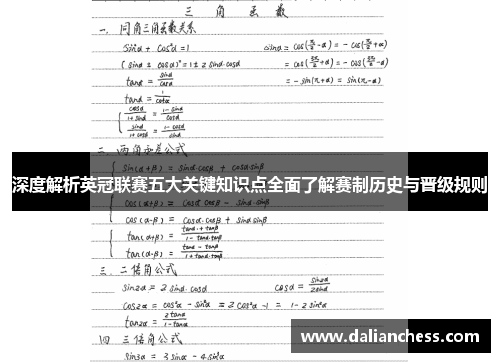 三 角 函 数
一. 同角三角函数关系
sin²α + cos²α = 1 sinα = cos(π/2-α) = -cos(π/2+α)
(sinα ± cosα)² = 1 ± 2 sinα·cosα = cos(3π/2+α) = -cos(3π/2-α)
tanα = sinα/cosα = -sin(π+α) = sin(π-α)
tanα = 1/cotα
cosα/1+sinα = 1-sinα/cosα
sinα/1+cosα = 1-cosα/sinα
二. 两角和差公式
sin(α+β) = sinα·cosβ + cosα·sinβ
深度解析英冠联赛五大关键知识点全面了解赛制历史与晋级规则
cos(α+β) = cosα·cosβ - sinα·sinβ
cos(α-β) = cosα·cosβ + sinα·sinβ
tan(α+β) = tanα+tanβ/1-tanα·tanβ
tan(α-β) = tanα-tanβ/1+tanα·tanβ
三. 二倍角公式
sin2α = 2 sinα·cosα cosα = sin2α/2sinα
cos2α = cos²α - sin²α = 2cos²α - 1 = 1 - 2sin²α
tan2α = 2tanα/1-tan²α
四 三倍角公式
sin3α = 3sinα - 4sin³α
www.dalianchess.com